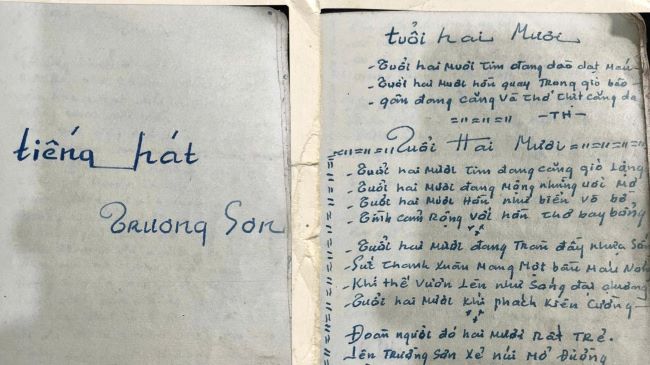 tiếng hát
Trường Sơn
tuổi hai Mươi
- Tuổi hai mươi tim đang dào dạt máu
- Tuổi hai mươi hồn quay Trong gió bão
- gân đang căng và thớ thịt căng da
=11=11=11 -TH-
Tuổi Hai Mươi
- Tuổi hai mươi tim đang căng gió lộng
- Tuổi hai mươi đang mộng những ước mơ
- Tuổi hai mươi Hồn như biển vỗ bờ
- Tình cảm Rộng với hồn thơ bay bổng
- Tuổi hai mươi đang Tràn đầy nhựa Sống
- Sức Thanh Xuân Mang Một bầu Máu Nón
- Khí thế Vươn Lên như Sóng đại dương
- Tuổi hai mươi khí phách Kiên Cường
Đoàn người đó hai mươi Rất TRẻ.
Lên TRường Sơn Xẻ núi Mở Đường